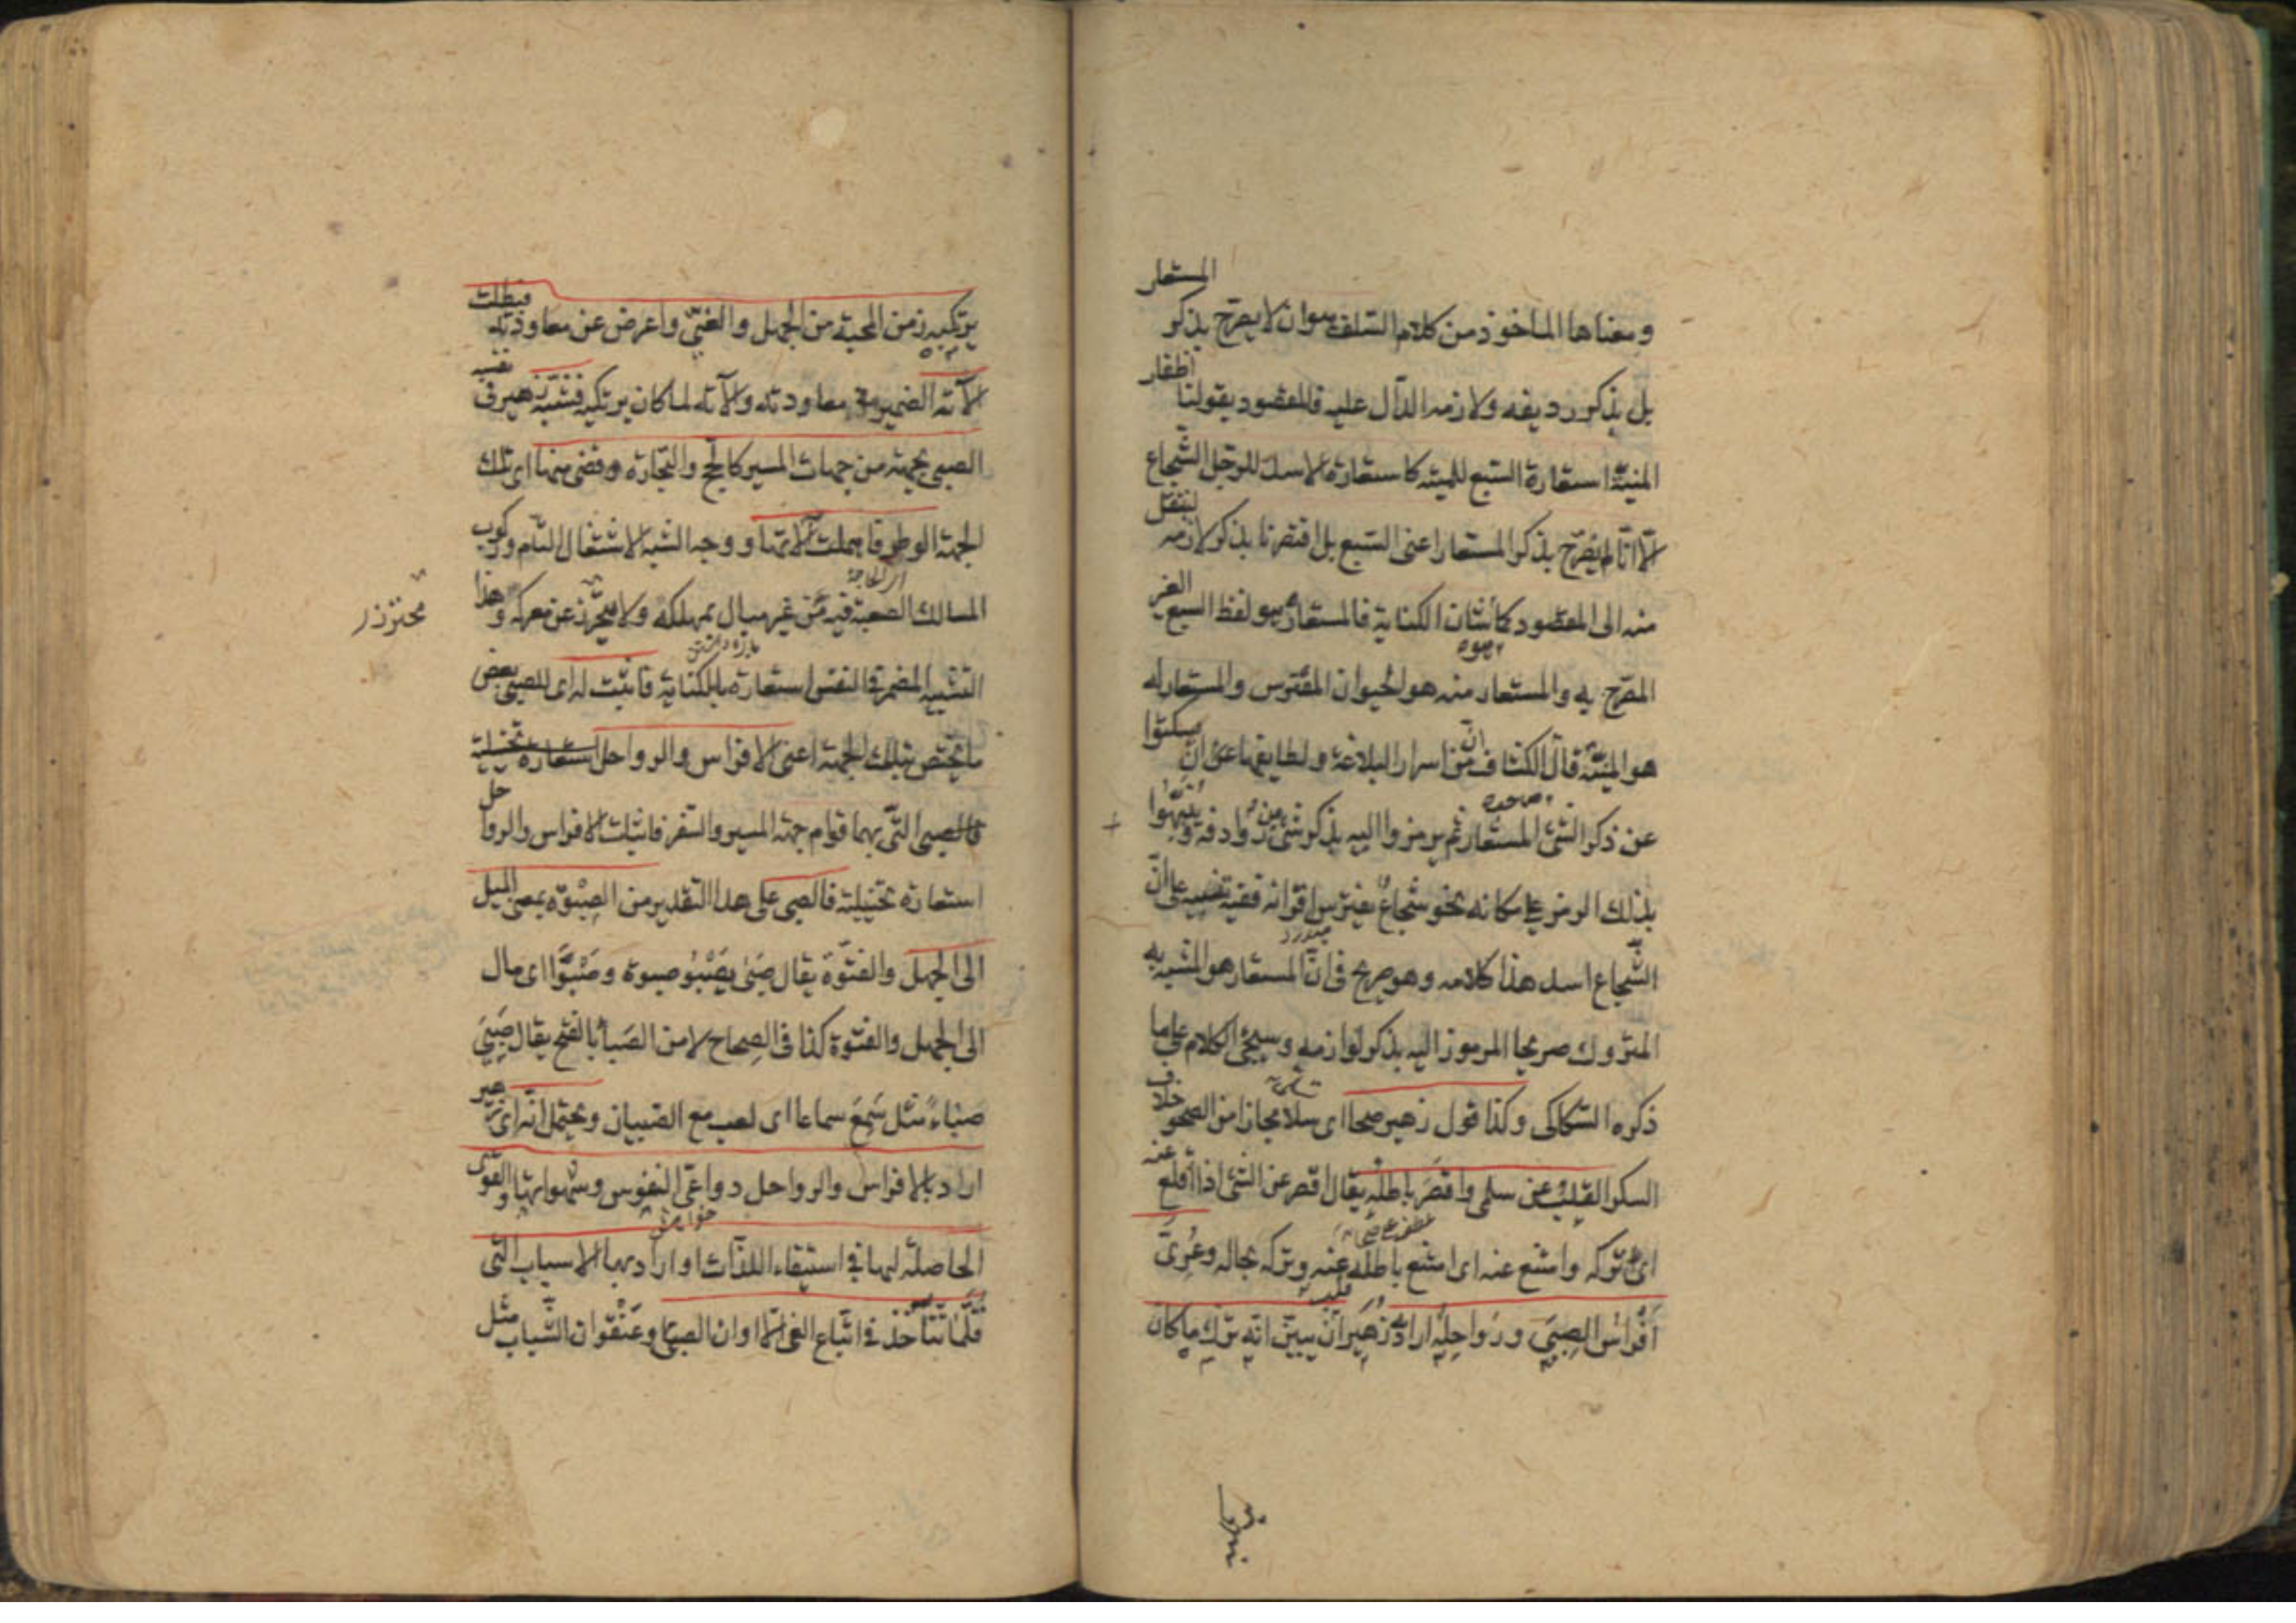 ومعناها الماخوذ من كلام السلف هو ان لا يصرح بذكر المستعار
بل بذكر رديفه ولازمه الدال عليه فالمقصود بقولنا اظفار
المنية استعارة السبع للمنية كاستعارة الاسد للرجل الشجاع
الا انا لم نصرح بذكر المستعار اعنى السبع بل اقتصرنا بذكر لازمه لينتقل
منه الى المقصود كما شان الكناية فالمستعار هو لفظ السبع الغير
المصرح به والمستعار منه هو الحيوان المفترس والمستعار له
هو المنية قال الكشاف ان من اسرار البلاغة ولطايفها عن ان يسكتوا
عن ذكر الشئ المستعار ثم يرمزوا اليه بذكر شئ من روادفه وينبهوا
بذلك الرمز على مكانه نحو شجاع يفترس اقرانه ففيه تنبيه على ان
الشجاع اسد هذا كلامه وهو صريح فى ان المستعار هو المشبه به
المتروك صريحا المرموز اليه بذكر لوازمه وسيجئ الكلام على ما
ذكره السكاكى وكذا قول زهير صحا اى سلا مجازا من الصحو خلاف
السكر القلب عن سلمى واقصر باطله يقال اقصر عن الشئ اذا اقلع عنه
اى تركه وامتنع عنه اى امتنع باطله عنه وتركه بحاله وعرى
افراس الصبى ورواحله اراد زهير ان يبين انه ترك ما كان
يرتكبه زمن المحبة من الجهل والغى واعرض عن معاودته فبطلت
الآته الضمير فى معاودته والآته لما كان يرتكبه فشبه زهير فى نفسه
الصبى بجهة من جهات المسير كالحج والتجارة وقضى منها اى تلك
الجهة الوطر فاهملت آلاتها ووجه الشبه الاشتغال التام وركوب
المسالك الصعبة فيه من غير مبال بمهلكة ولا محترز عن معركة وهذا
محترز
التشبيه المضمر فى النفس استعارة بالكناية فاثبت له اى للصبى بعض
ما يختص بتلك الجهة اعنى الافراس والرواحل استعارة تخييلية
فالصبى التى بهما قوام جهة المسير والسفر فاثبات الافراس والرواحل
استعارة تخييلية فالصبى على هذا التقدير من الصبوة بمعنى الميل
الى الجهل والفتوة يقال صبى يصبو صبوة وصبوا اى مال
الى الجهل والفتوة كذا فى الصحاح لا من الصباء بالفتح يقال صبى
صباء مثل سمع سماعا اى لعب مع الصبيان ويحتمل انه اى زهير
اراد بالافراس والرواحل دواعى النفوس وشهواتها والقوى
الحاصلة لها فى استيفاء اللذات او اراد بها الاسباب التى
قلما تتاخذ فى اتباع الغى الا اوان الصبى وعنفوان الشباب مثل